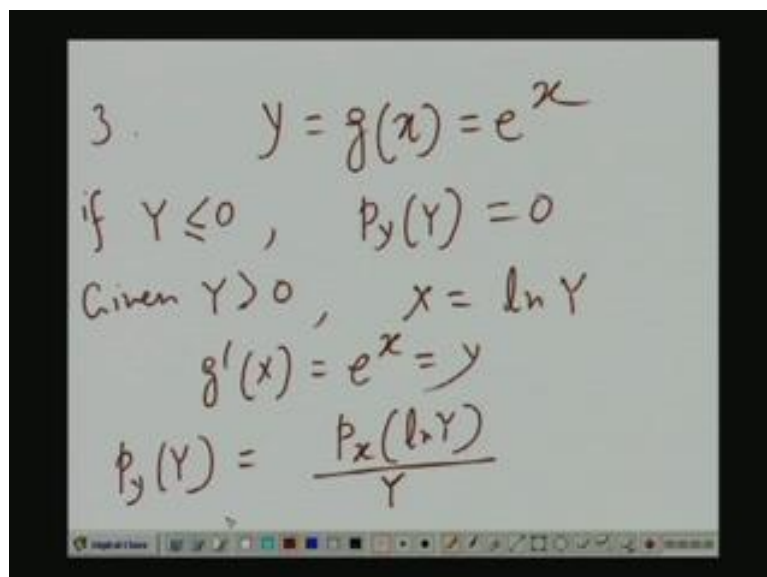 3. y = g(x) = e^x
if Y ≤ 0, p_y(Y) = 0
Given Y > 0, X = ln Y
g'(X) = e^x = y
p_y(Y) = p_x(ln Y) / Y